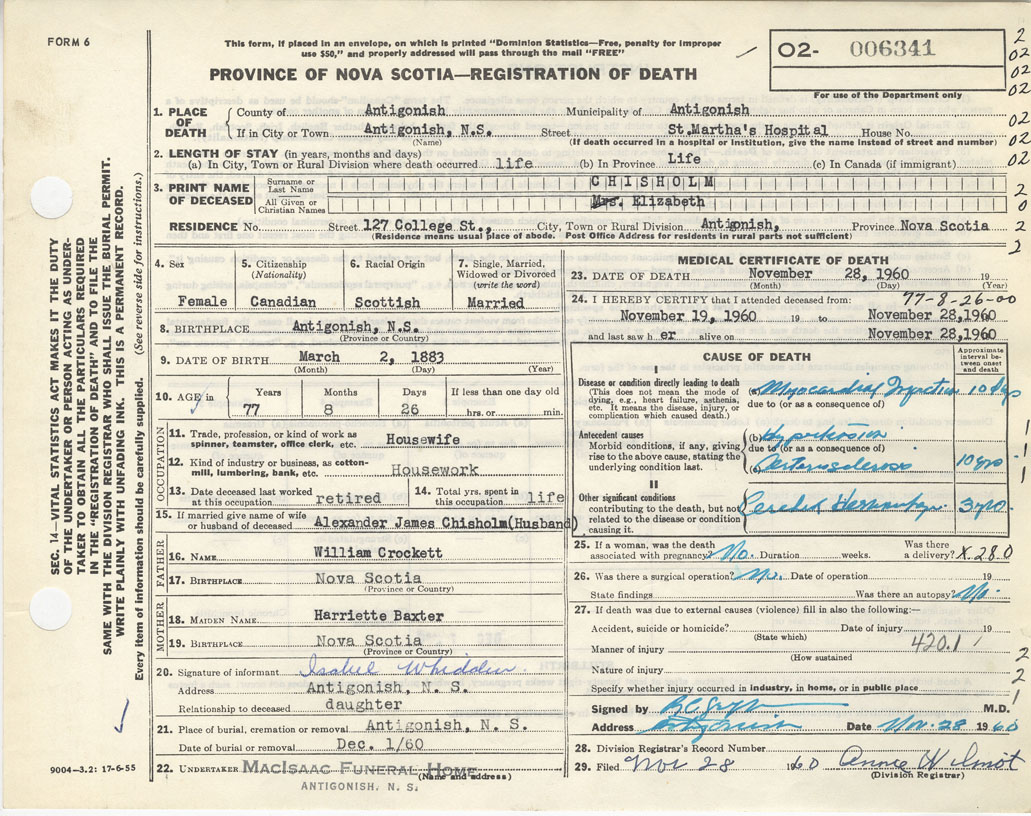 FORM 6
This form, if placed in an envelope, on which is printed "Dominion Statistics—Free, penalty for improper
use $50," and properly addressed will pass through the mail "FREE"
O2- 006341
For use of the Department only
PROVINCE OF NOVA SCOTIA—REGISTRATION OF DEATH
1. PLACE OF DEATH
County of Antigonish Municipality of Antigonish
If in City or Town Antigonish, N.S. Street St.Martha's Hospital House No.
(Name) (If death occurred in a hospital or institution, give the name instead of street and number)
2. LENGTH OF STAY (in years, months and days)
(a) In City, Town or Rural Division where death occurred life (b) In Province Life (c) In Canada (if immigrant)
3. PRINT NAME OF DECEASED
Surname or Last Name CHISHOLM
All Given or Christian Names Mrs. Elizabeth
RESIDENCE No. Street 127 College St., City, Town or Rural Division Antigonish, Province Nova Scotia
(Residence means usual place of abode. Post Office Address for residents in rural parts not sufficient)
4. Sex Female
5. Citizenship (Nationality) Canadian
6. Racial Origin Scottish
7. Single, Married, Widowed or Divorced (write the word) Married
8. BIRTHPLACE Antigonish, N.S.
(Province or Country)
9. DATE OF BIRTH March 2, 1883
(Month) (Day) (Year)
10. AGE in Years 77 Months 8 Days 26 If less than one day old hrs. or min.
OCCUPATION
11. Trade, profession, or kind of work as spinner, teamster, office clerk, etc. Housewife
12. Kind of industry or business, as cotton-mill, lumbering, bank, etc. Housework
13. Date deceased last worked at this occupation retired
14. Total yrs. spent in this occupation life
15. If married give name of wife or husband of deceased Alexander James Chisholm(Husband)
FATHER
16. NAME William Crockett
17. BIRTHPLACE Nova Scotia
(Province or Country)
MOTHER
18. MAIDEN NAME Harriette Baxter
19. BIRTHPLACE Nova Scotia
(Province or Country)
20. Signature of informant Isabel Whidden
Address Antigonish, N. S.
Relationship to deceased daughter
21. Place of burial, cremation or removal Antigonish, N. S.
Date of burial or removal Dec. 1/60
22. UNDERTAKER MACISAAC FUNERAL HOME
(Name and address)
ANTIGONISH, N. S.
MEDICAL CERTIFICATE OF DEATH
23. DATE OF DEATH November 28, 1960 19
(Month) (Day) (Year)
24. I HEREBY CERTIFY that I attended deceased from: 77-8-26-00
November 19, 1960 19 to November 28,1960
and last saw her alive on November 28,1960
CAUSE OF DEATH
Approximate interval between onset and death
I
Disease or condition directly leading to death
(This does not mean the mode of dying, e.g., heart failure, asthenia, etc. It means the disease, injury, or complication which caused death.)
(a) Myocardial Infarction 10 days
due to (or as a consequence of)
Antecedent causes
Morbid conditions, if any, giving rise to the above cause, stating the underlying condition last.
(b) Hypertension
due to (or as a consequence of)
(c) Arteriosclerosis 10 yrs
II
Other significant conditions contributing to the death, but not related to the disease or condition causing it.
Cerebral Hemorrhage 3 yrs.
25. If a woman, was the death associated with pregnancy? No. Duration weeks. Was there a delivery? X.280
26. Was there a surgical operation? No. Date of operation 19
State findings Was there an autopsy? No.
27. If death was due to external causes (violence) fill in also the following:—
Accident, suicide or homicide? Date of injury 19
(State which)
Manner of injury 420.1
(How sustained
Nature of injury
Specify whether injury occurred in industry, in home, or in public place
Signed by M.D.
Address Antigonish Date Nov. 28 1960
28. Division Registrar's Record Number
29. Filed Nov 28 1960 Annie Wilmot
(Division Registrar)
SEC. 14—VITAL STATISTICS ACT MAKES IT THE DUTY
OF THE UNDERTAKER OR PERSON ACTING AS UNDER-
TAKER TO OBTAIN ALL THE PARTICULARS REQUIRED
IN THE "REGISTRATION OF DEATH" AND TO FILE THE
SAME WITH THE DIVISION REGISTRAR WHO SHALL ISSUE THE BURIAL PERMIT.
WRITE PLAINLY WITH UNFADING INK. THIS IS A PERMANENT RECORD.
Every item of information should be carefully supplied. (See reverse side for instructions.)
9004—3.2: 17-6-55
2
02
02
02
02
02
02
2
0
2
2
1
1
1
2
2
1
2